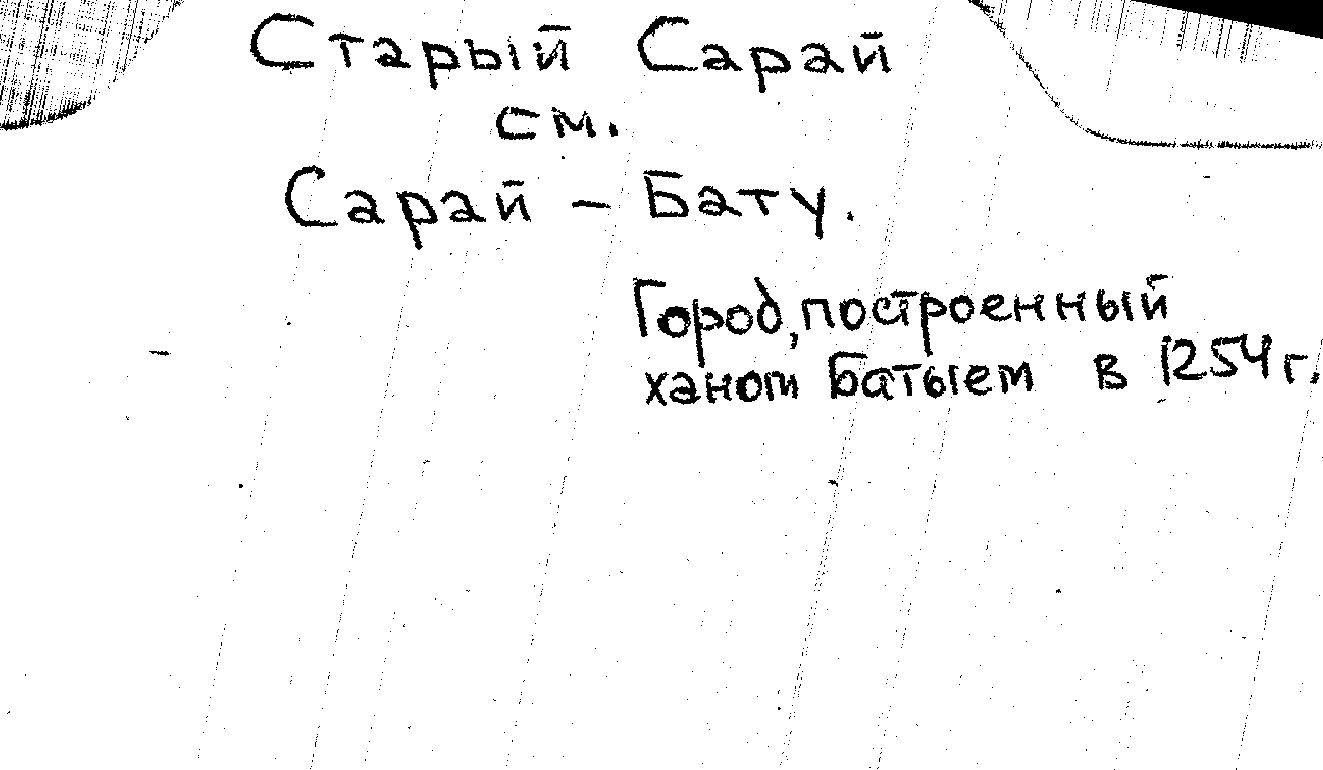 Старый Сарай
см.
Сарай - Бату.
Город, построенный
ханом Батыем в 1254 г.